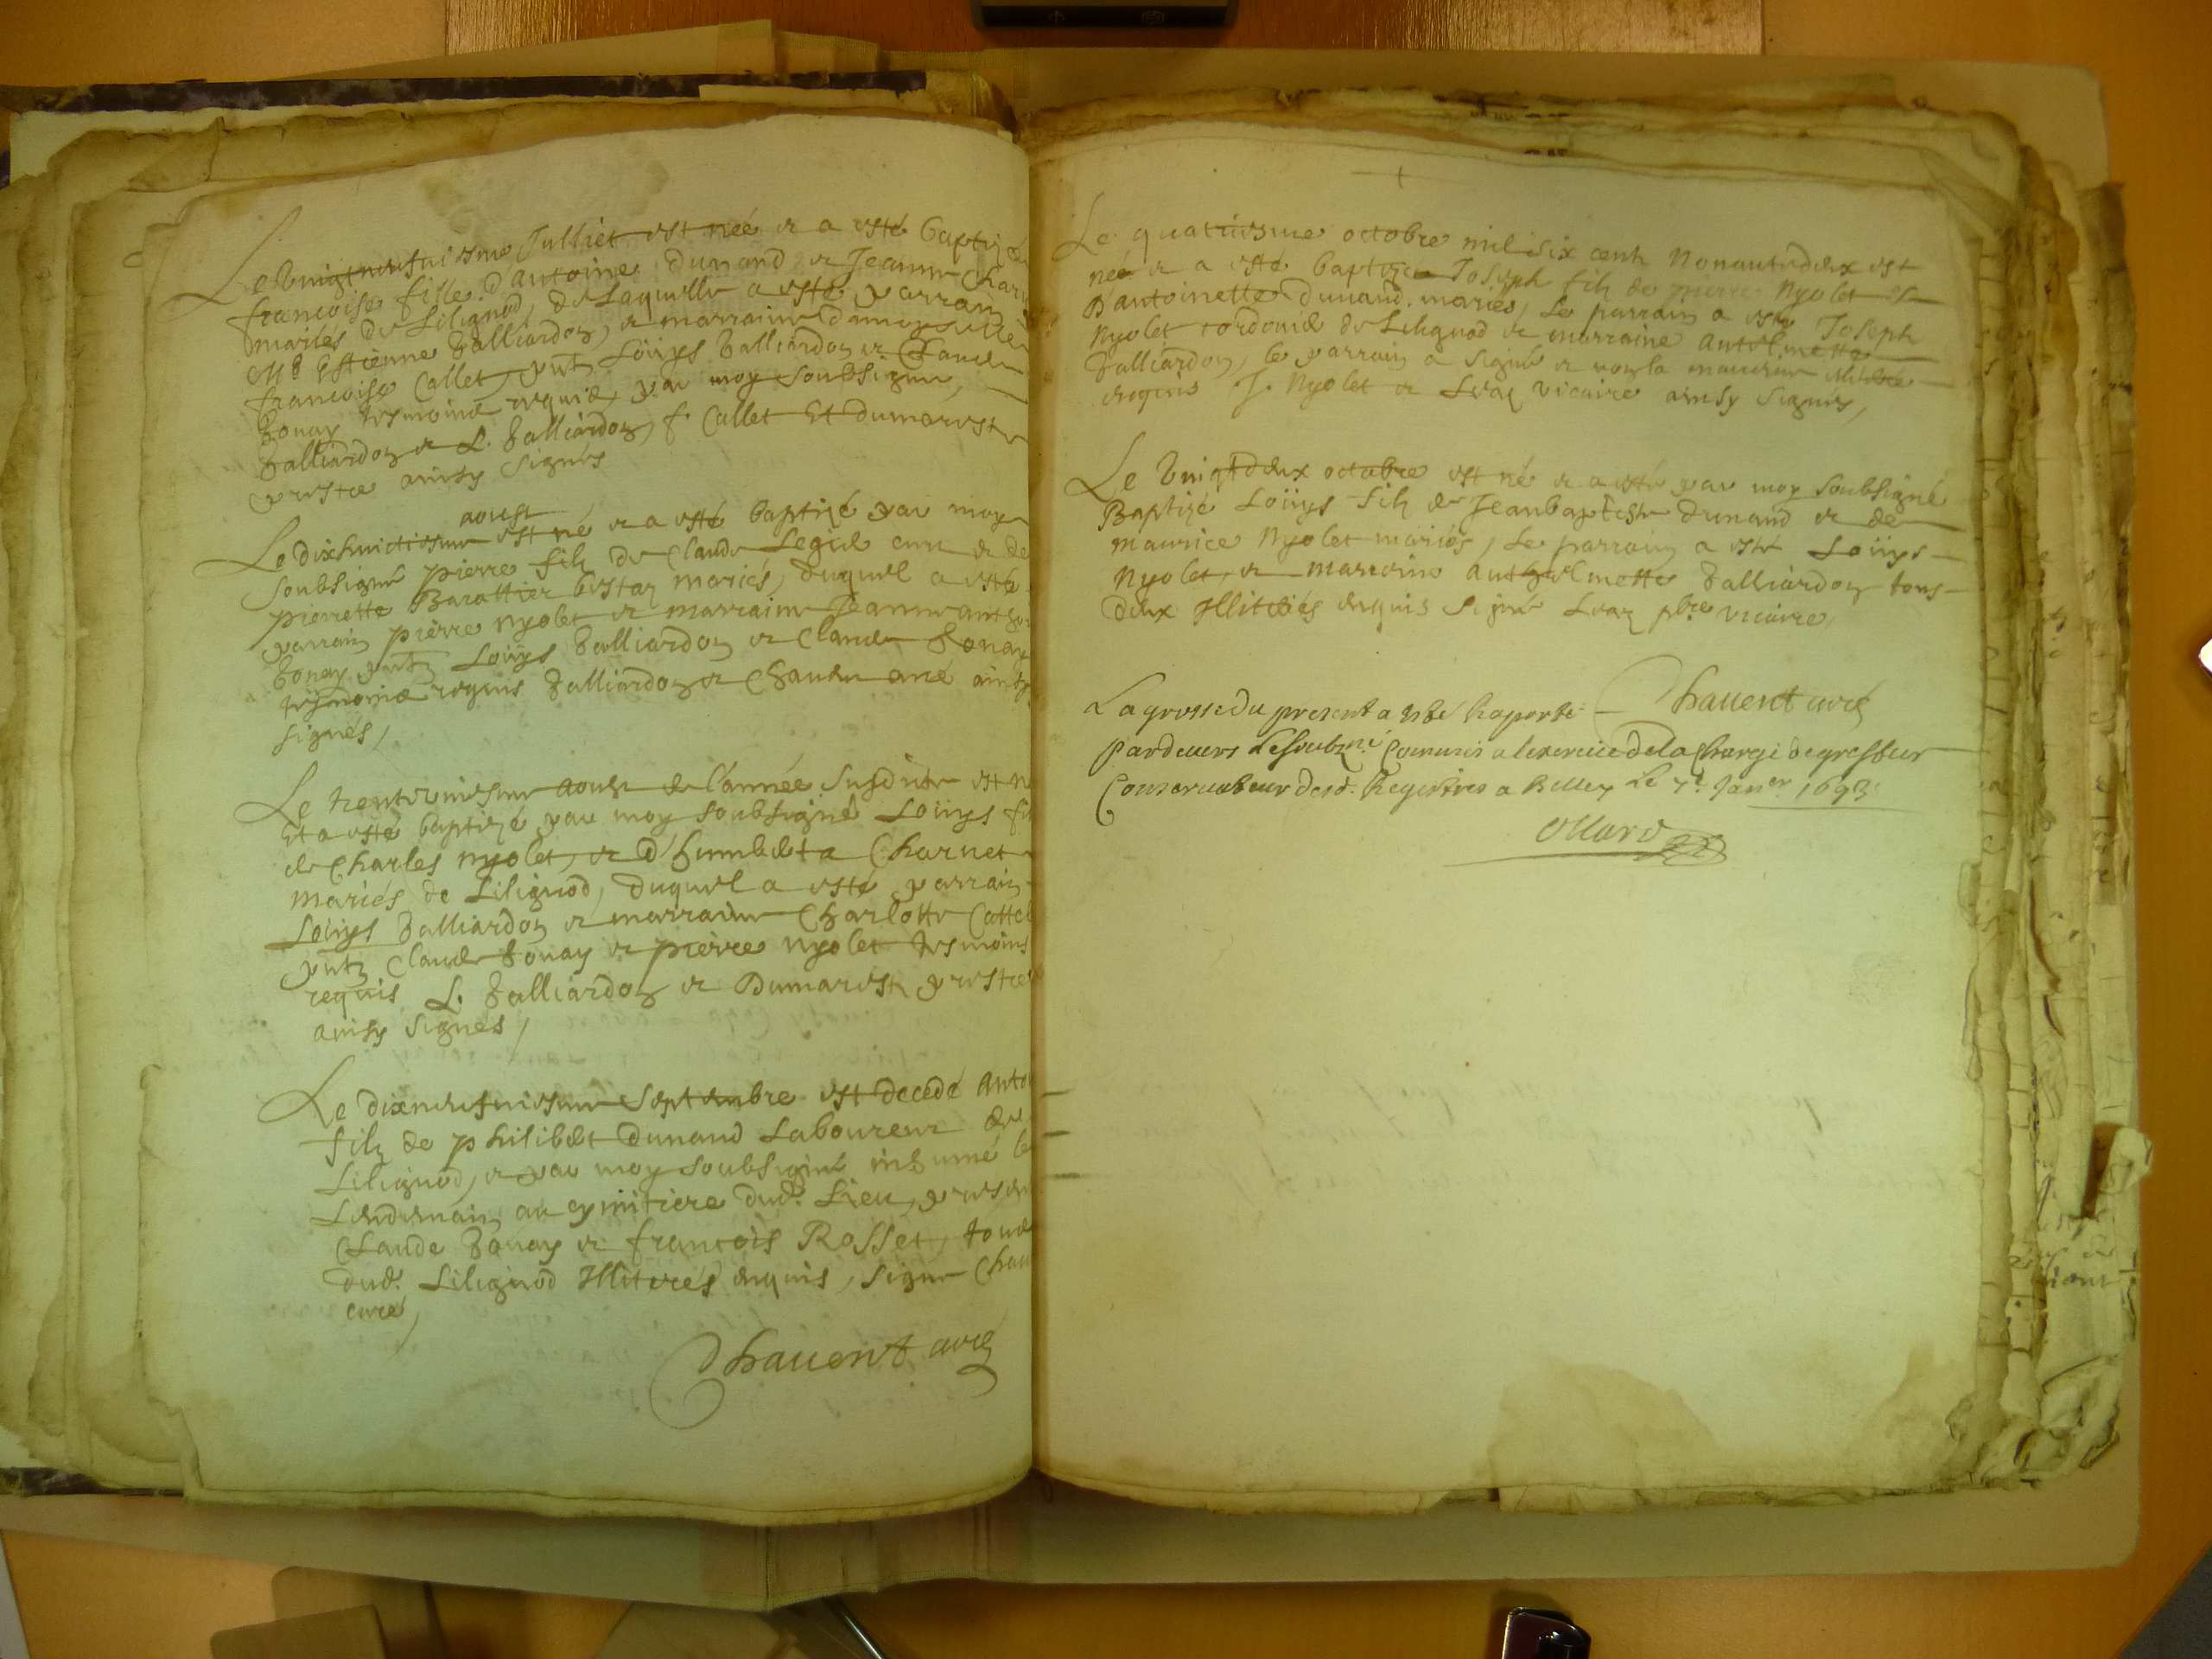 Le vingtneufuiesme Julliet est née et a esté baptizée
francoise fille d'antoine dunand et Jeanne Char
mariés de Lilignod, de Laquelle a esté parrain
Mr Estienne Balliardoz et marraine damoyselle
francoise Callet, pntz Loüys Balliardoz et Claude
bonay tesmoins requis par moy soubsigné,
Balliardoz et L. Balliardoz, f. Callet Et dumarest
prestre ainsy signés
aoust
Le dixhuictiesme est né et a esté baptizé par moy
soubsigné pierre filz de Claude
pierrette Barattier mariés, duquel a esté
parrain pierre nyolet et marraine Jeanne
bonay pntz Loüys Balliardoz et Claude bonay
tesmoins requis Balliardoz et curé ainsy
signés,
Le trentuniesme aoust de l'année susdite est n
Et a esté baptizé par moy soubsigné Loüys fi
de Charles nyolet, et d'humberta Charuet
mariés de Lilignod, duquel a esté parrain
Loüys Balliardoz et marraine Charlotte Catte
pntz Claude bonay et pierre nyolet tesmoins
requis L. Balliardoz et Dumarest prestre
ainsy signés,
Le dixneufuiesme septembre est decedé anto
filz de philibert dunand Laboureur de
Lilignod, et par moy soubsigné inhumé le
Lendemain au cymitiere dud. Lieu, presen
Claude bonay et francois Rosset, tous
dud. Lilignod Illiterés enquis, signé Chau
curé,
Chauent curé
Le quatriesme octobre mil six cents nonantedeux est
née et a esté baptizé Joseph filz de pierre nyolet et
D'antoinette dunand mariés, Le parrain a esté Joseph
nyolet de Lilignod et marraine anthelmette
Balliardoz, le parrain a signé et non la marraine illiterée
requis J. Nyolet et vicaire ainsy signés,
Le vingtdeux octobre est né et a esté par moy soubsigné
Baptizé Loüys filz de Jeanbaptiste dunand et de
maurice Nyolet mariés, Le parrain a esté Loüys
Nyolet, et marraine anthelmette Balliardoz tous
deux Illiterés enquis signé pbre vicaire,
Chauent curé
La grosse du present a esté raporté
pardeuers Le soubzné Commis a lexercice de la charge de greffier
Conseruateur desd. Registres a Belley Le 7e Janer 1693
Ollard